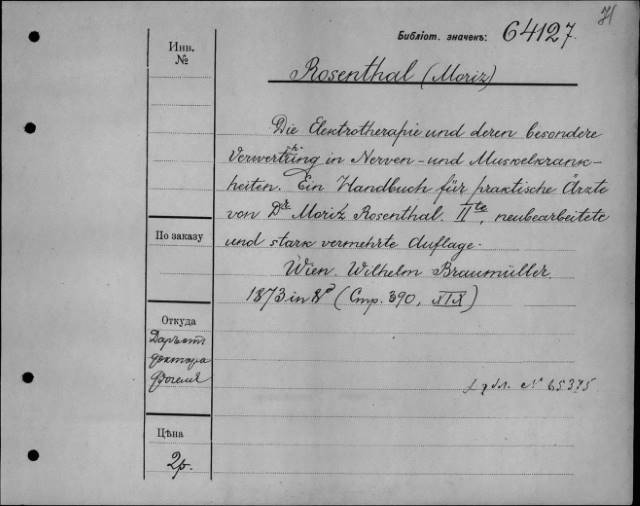 71
Библіот. значекъ: 64127.
Инв.
№
Rosenthal (Moriz)
Die Elektrotherapie und deren besondere
Verwerthung in Nerven- und Muskelkrank-
heiten. Ein Handbuch für praktische Ärzte
von Dr Moriz Rosenthal. IIte, neubearbeitete
und stark vermehrte Auflage.
Wien. Wilhelm Braumüller.
1873 in 8° (Стр. 390, XIX)
По заказу
Откуда
Даръ отъ
доктора
Фогеля
дбл. № 65375
Цѣна
2р.